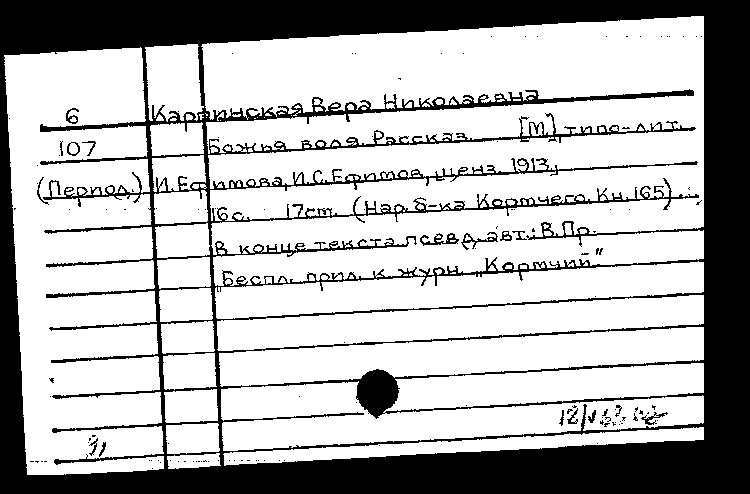 6 Карпинская, Вера Николаевна
107 Божья воля. Рассказ. [М.], типо-лит.
(Период.) И. Ефимова, И.С. Ефимов, ценз. 1913,
16 с. 17 ст. (Нар. б-ка Кормчего. Кн. 165).
В конце текста псевд. авт.: В. Пр.
Беспл. прил. к журн. „Кормчий"